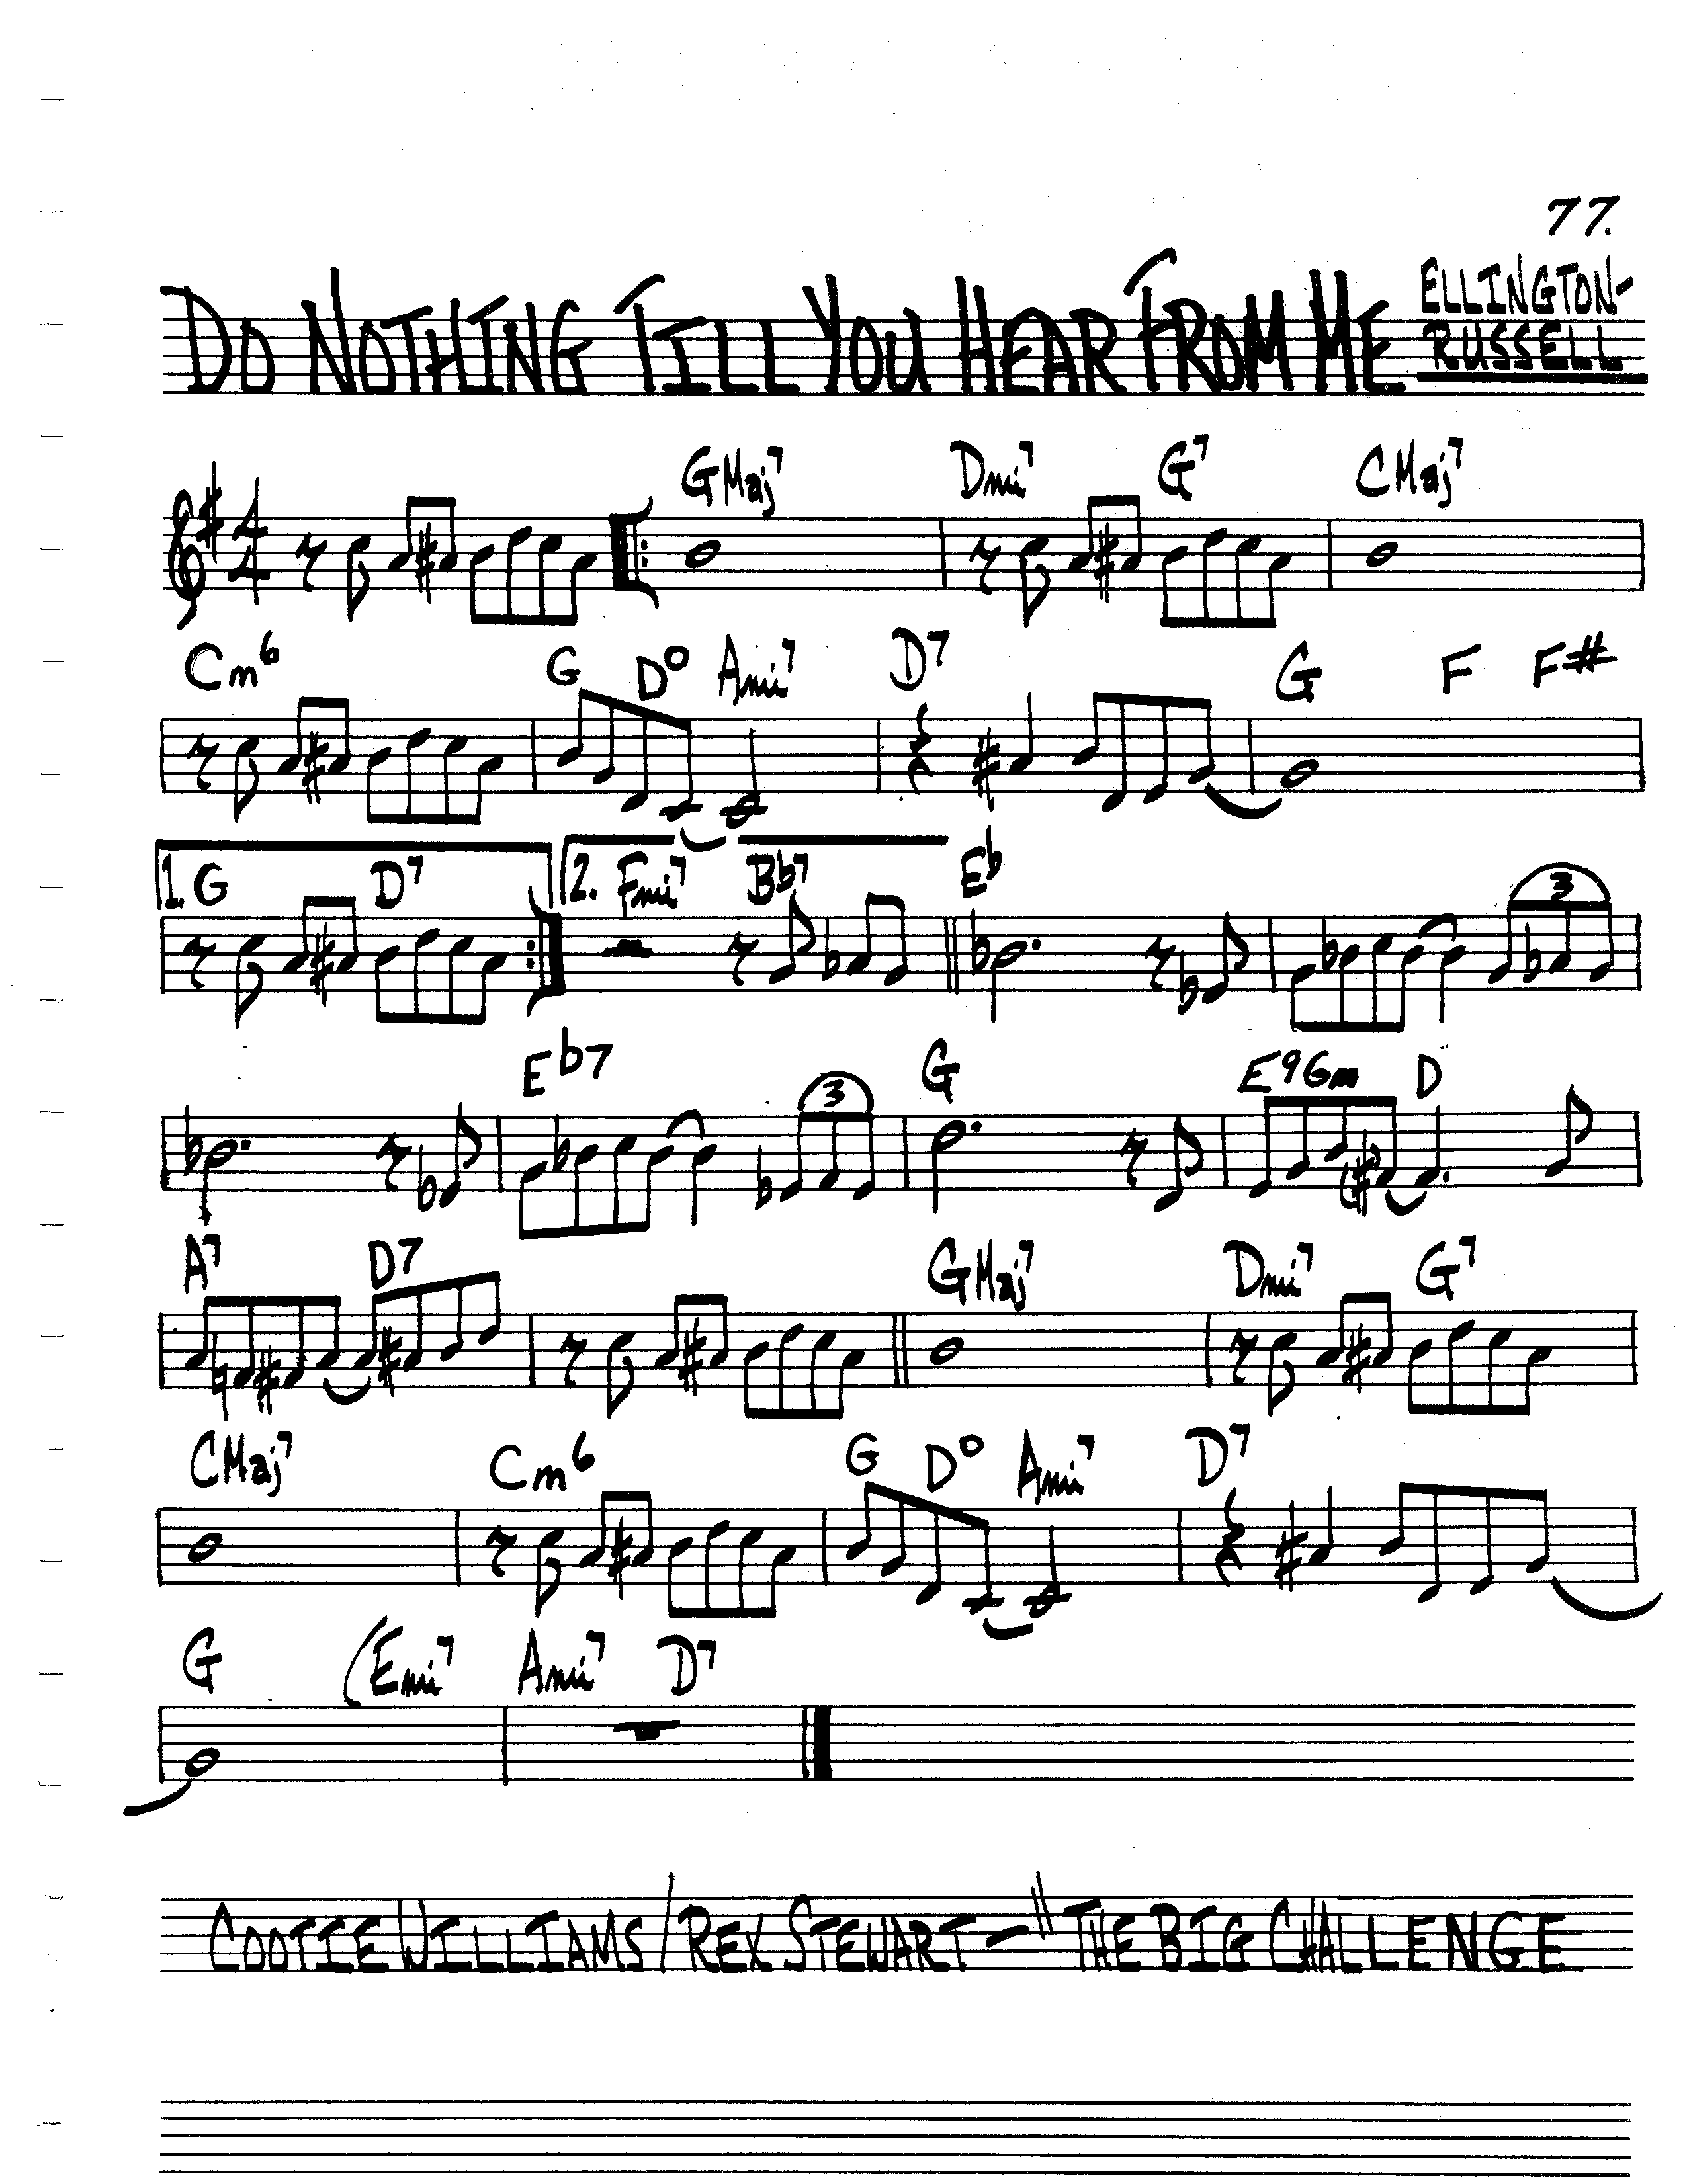 77.
DO NOTHING TILL YOU HEAR FROM ME
ELLINGTON-
RUSSELL
GMaj7 Dmi7 G7 CMaj7
4
4
Cm6 G D° Ami7 D7 G F F#
1. G D7 2. Fmi7 Bb7 Eb
3
Eb7 G E9 Gm D
3
A7 D7 GMaj7 Dmi7 G7
CMaj7 Cm6 G D° Ami7 D7
G (Emi7 Ami7 D7
COOTIE WILLIAMS / REX STEWART — "THE BIG CHALLENGE